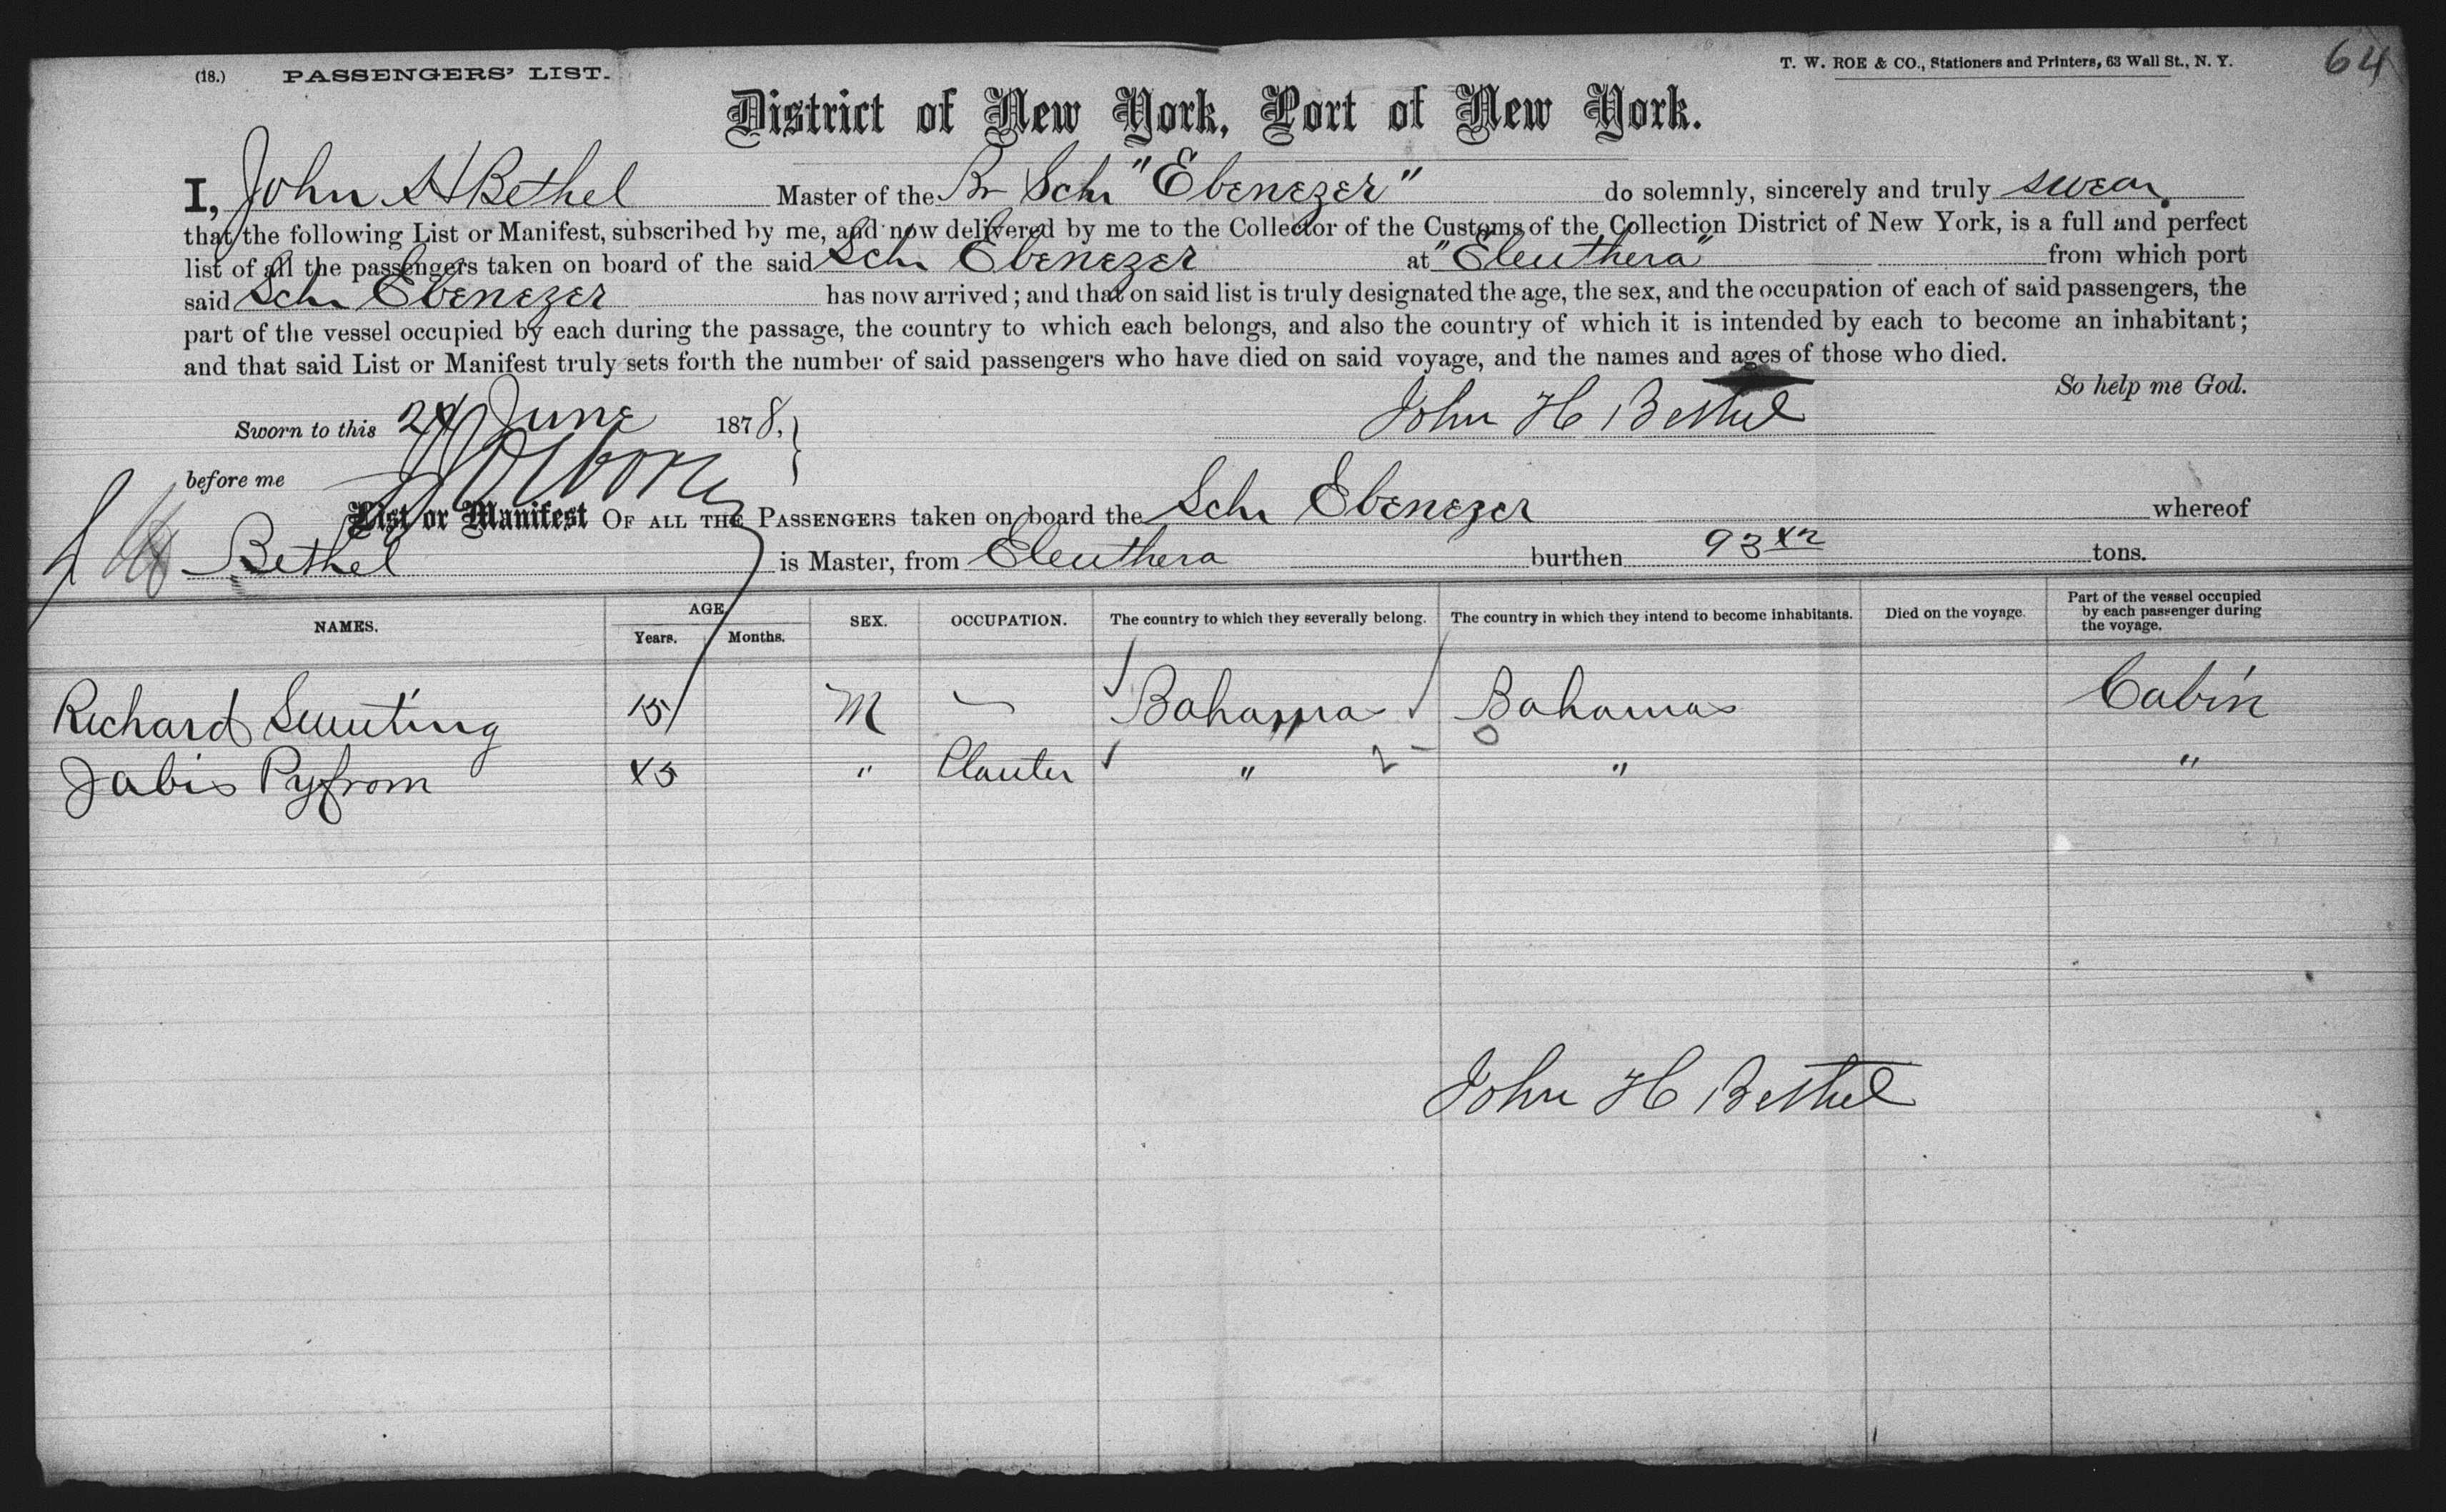 (18.) PASSENGERS' LIST. T. W. ROE & CO., Stationers and Printers, 63 Wall St., N. Y. 64
District of New York, Port of New York.
I, John H Bethel Master of the Br Schr "Ebenezer" do solemnly, sincerely and truly swear
that the following List or Manifest, subscribed by me, and now delivered by me to the Collector of the Customs of the Collection District of New York, is a full and perfect
list of all the passengers taken on board of the said Schr Ebenezer at "Eleuthera" from which port
said Schr Ebenezer has now arrived; and that on said list is truly designated the age, the sex, and the occupation of each of said passengers, the
part of the vessel occupied by each during the passage, the country to which each belongs, and also the country of which it is intended by each to become an inhabitant;
and that said List or Manifest truly sets forth the number of said passengers who have died on said voyage, and the names and ages of those who died.
So help me God.
Sworn to this 24 June 1878, John H Bethel
before me
List or Manifest OF ALL THE PASSENGERS taken on board the Schr Ebenezer whereof
Bethel is Master, from Eleuthera burthen 93 tons.
NAMES. AGE. Years. Months. SEX. OCCUPATION. The country to which they severally belong. The country in which they intend to become inhabitants. Died on the voyage. Part of the vessel occupied by each passenger during the voyage.
Richard 15 M — Bahama Bahamas Cabin
Jabis Pyfrom 45 " Planter " " "
John H Bethel